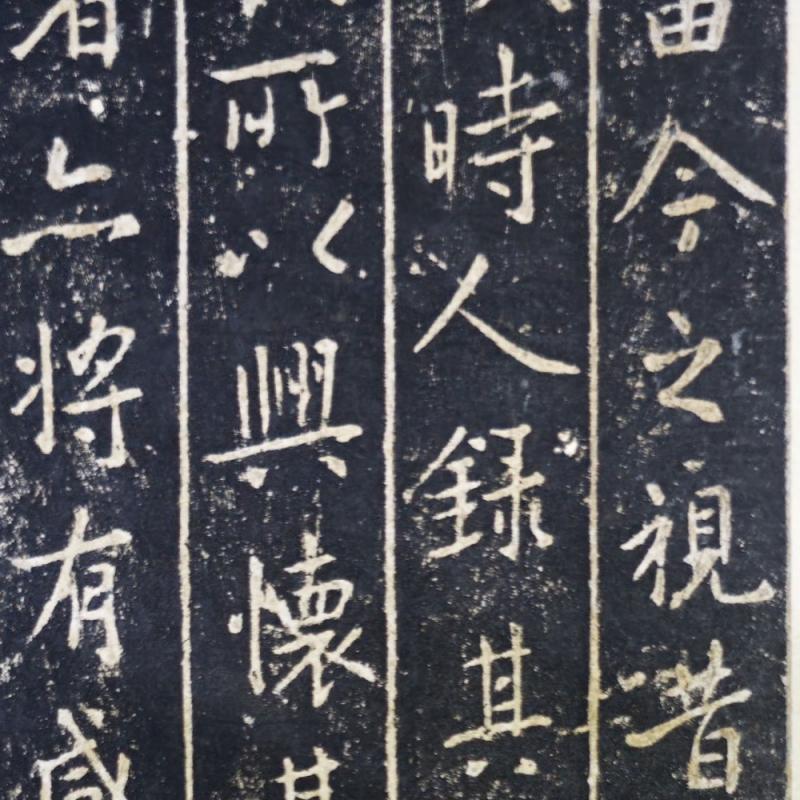 由今之視昔
時人録其
所以興懷其
者亦將有感